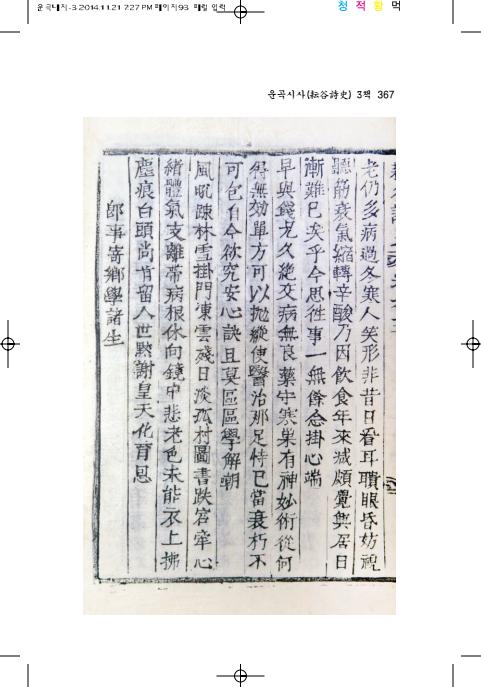 운곡내지-3 2014.11.21 7:27 PM 페이지93 매킬 입력
청 적 황 먹
운곡시사(耘谷詩史) 3책 367
老仍多病過冬寒人笑形非昔日看耳聵眼昏妨視
聽筋衰氣縮轉辛酸乃因飲食年來減頗覺興居日
漸難已矣乎今思往事一無餘念掛心端
早與錢兄久絶交病無良藥守寒巢有神妙術從何
得無効單方可以抛縱使醫治那足恃已當衰朽不
可包自今欲究安心訣且莫區區學解嘲
風吼踈林雪掛門凍雲殘日淡孤村圖書跌宕牽心
緖體氣支離帶病根休向鏡中悲老色未能衣上拂
塵痕白頭尙有留人世黙謝皇天化育恩
卽事寄鄕學諸生